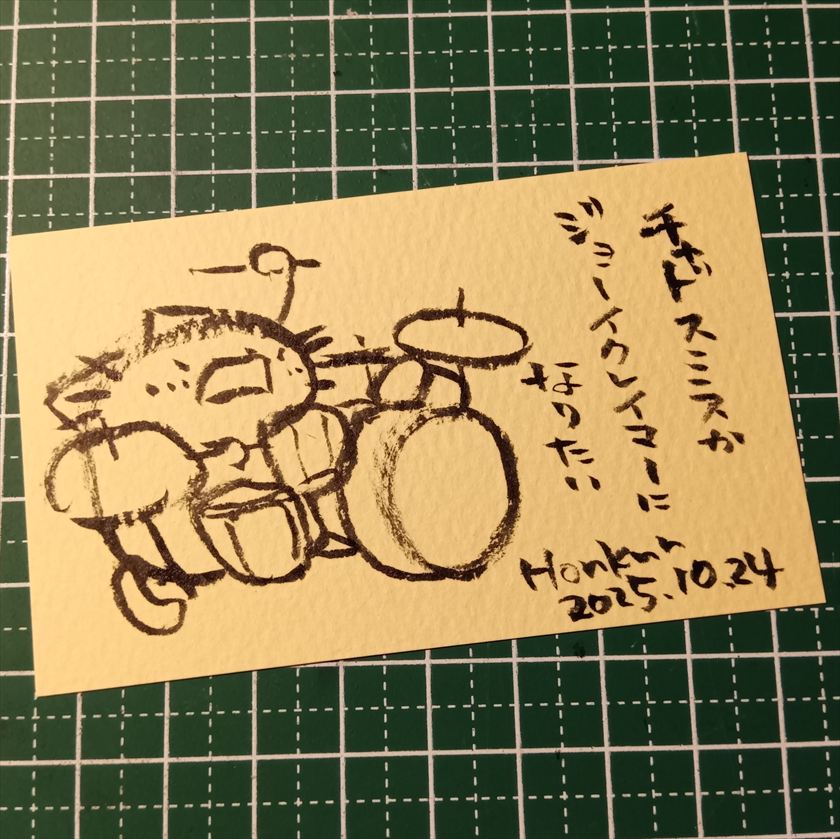 チャドスミスか
ジョーイクレイマーに
なりたい
Honkun
2025.10.24